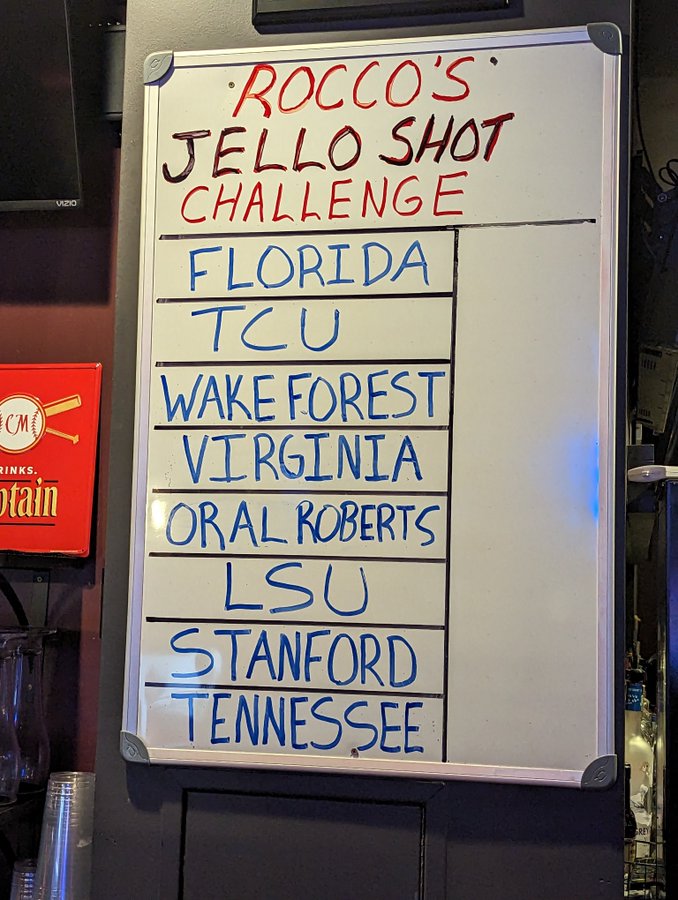 VIZIO
ROCCO'S
JELLO SHOT
CHALLENGE
FLORIDA
TCU
WAKE FOREST
VIRGINIA
ORAL ROBERTS
LSU
STANFORD
TENNESSEE
CM
RINKS.
ptain